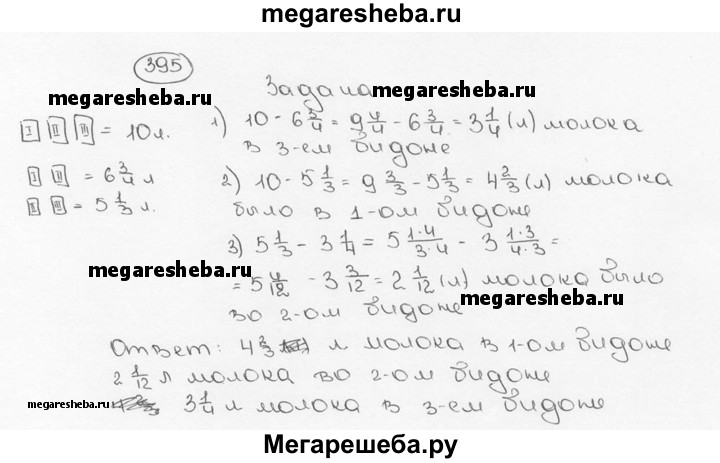 megaresheba.ru
395
Задача
megaresheba.ru
megaresheba.ru
I II III = 10 л.
1) 10 - 6 3/4 = 9 4/4 - 6 3/4 = 3 1/4 (л) молока
в 3-ем бидоне
I II = 6 3/4 л
2) 10 - 5 1/3 = 9 3/3 - 5 1/3 = 4 2/3 (л) молока
II III = 5 1/3 л.
было в 1-ом бидоне
3) 5 1/3 - 3 1/4 = 5 1·4/3·4 - 3 1·3/4·3 =
megaresheba.ru
= 5 4/12 - 3 3/12 = 2 1/12 (л) молока было
megaresheba.ru
во 2-ом бидоне
Ответ: 4 2/3 л молока в 1-ом бидоне
2 1/12 л молока во 2-ом бидоне
megaresheba.ru
3 1/4 л молока в 3-ем бидоне
Мегарешеба.ру